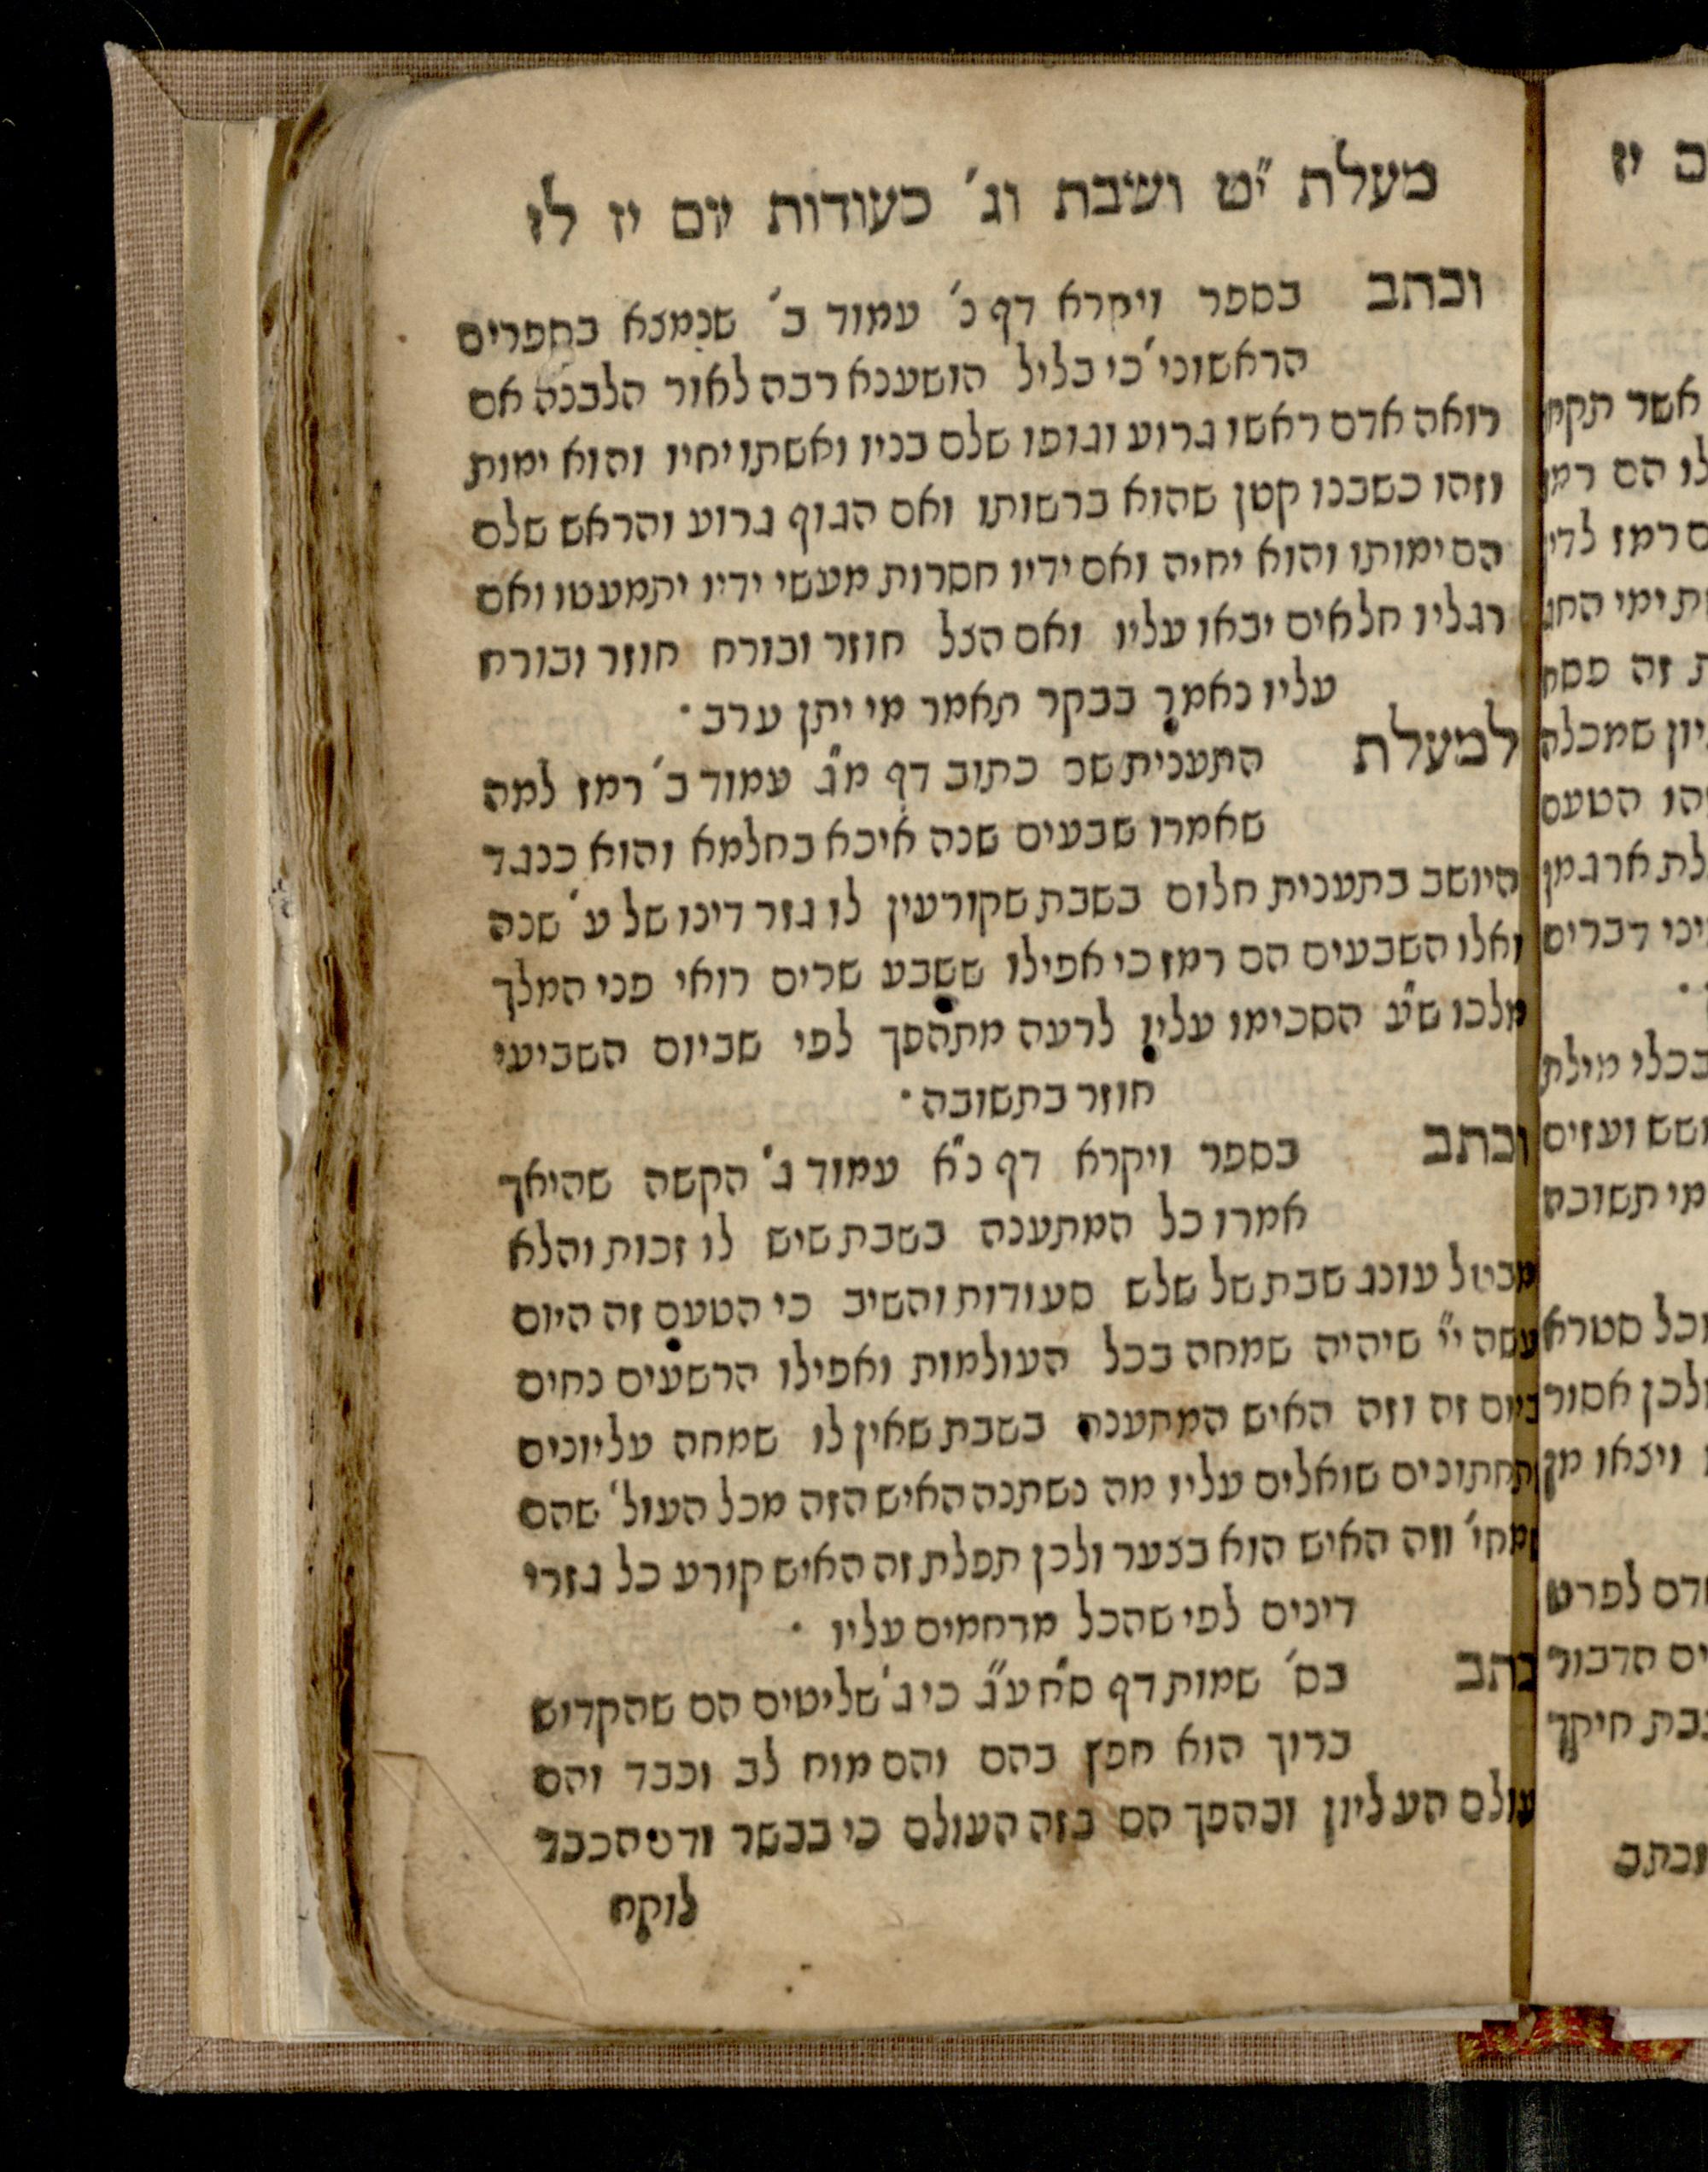 מעלת י״ט ושבת וג׳ סעודות יום יז לז
וכתב בספר ויקרא דף כ׳ עמוד ב׳ שנמצא בספרים
הראשוני׳ כי בליל הושענא רבה לאור הלבנה אם
רואה אדם ראשו גרוע וגופו שלם בניו ואשתו יחיו והוא ימות
וזהו כשבנו קטן שהוא ברשותו ואם הגוף גרוע והראש שלם
הם ימותו והוא יחיה ואם ידיו חסרות מעשי ידיו יתמעטו ואם
רגליו חלאים יבאו עליו ואם הצל חוזר ובורח חוזר ובורח
עליו נאמר בבקר תאמר מי יתן ערב.
למעלת התענית שם כתוב דף מ״ג עמוד ב׳ רמז למה
שאמרו שבעים שנה איכא בחלמא והוא כנגד
היושב בתענית חלום בשבת שקורעין לו גזר דינו של ע׳ שנה
ואלו השבעים הם רמז כי אפילו ששבע שרים רואי פני המלך
מלכו ש״ע הסכימו עליו לרעה מתהפך לפי שביום השביעי
חוזר בתשובה.
וכתב בספר ויקרא דף כ״א עמוד ג׳ הקשה שהיאך
אמרו כל המתענה בשבת שיש לו זכות והלא
מבטל עונג שבת של שלש סעודות והשיב כי הטעם זה היום
עשה י״י שיהיה שמחה בכל העולמות ואפילו הרשעים נחים
ביום זה וזה האיש המתענה בשבת שאין לו שמחה עליונים
תחתונים שואלים עליו מה נשתנה האיש הזה מכל העול׳ שהם
שמחי׳ וזה האיש הוא בצער ולכן תפלת זה האיש קורע כל גזרי
דינים לפי שהכל מרחמים עליו.
כתב בס׳ שמות דף ס״ח ע״ג כי ג׳ שליטים הם שהקדוש
ברוך הוא חפץ בהם והם מוח לב וכבד והם
עולם העליון ובהפך הם בזה העולם כי בבשר ודם הכבד
לוקח
ם יז
אשר תקח
לו הם רמז
ם רמז לדי
ת ימי החג
ת זה פסח
יון שמכלה
הו הטעם
לת ארגמן
יני דברים
בכלי מילת
ושש ועזים
מי תשובה
וכל סטרא
ולכן אסור
ויצאו מן
אדם לפרט
ים הדבור
בת חיקך
וכתב